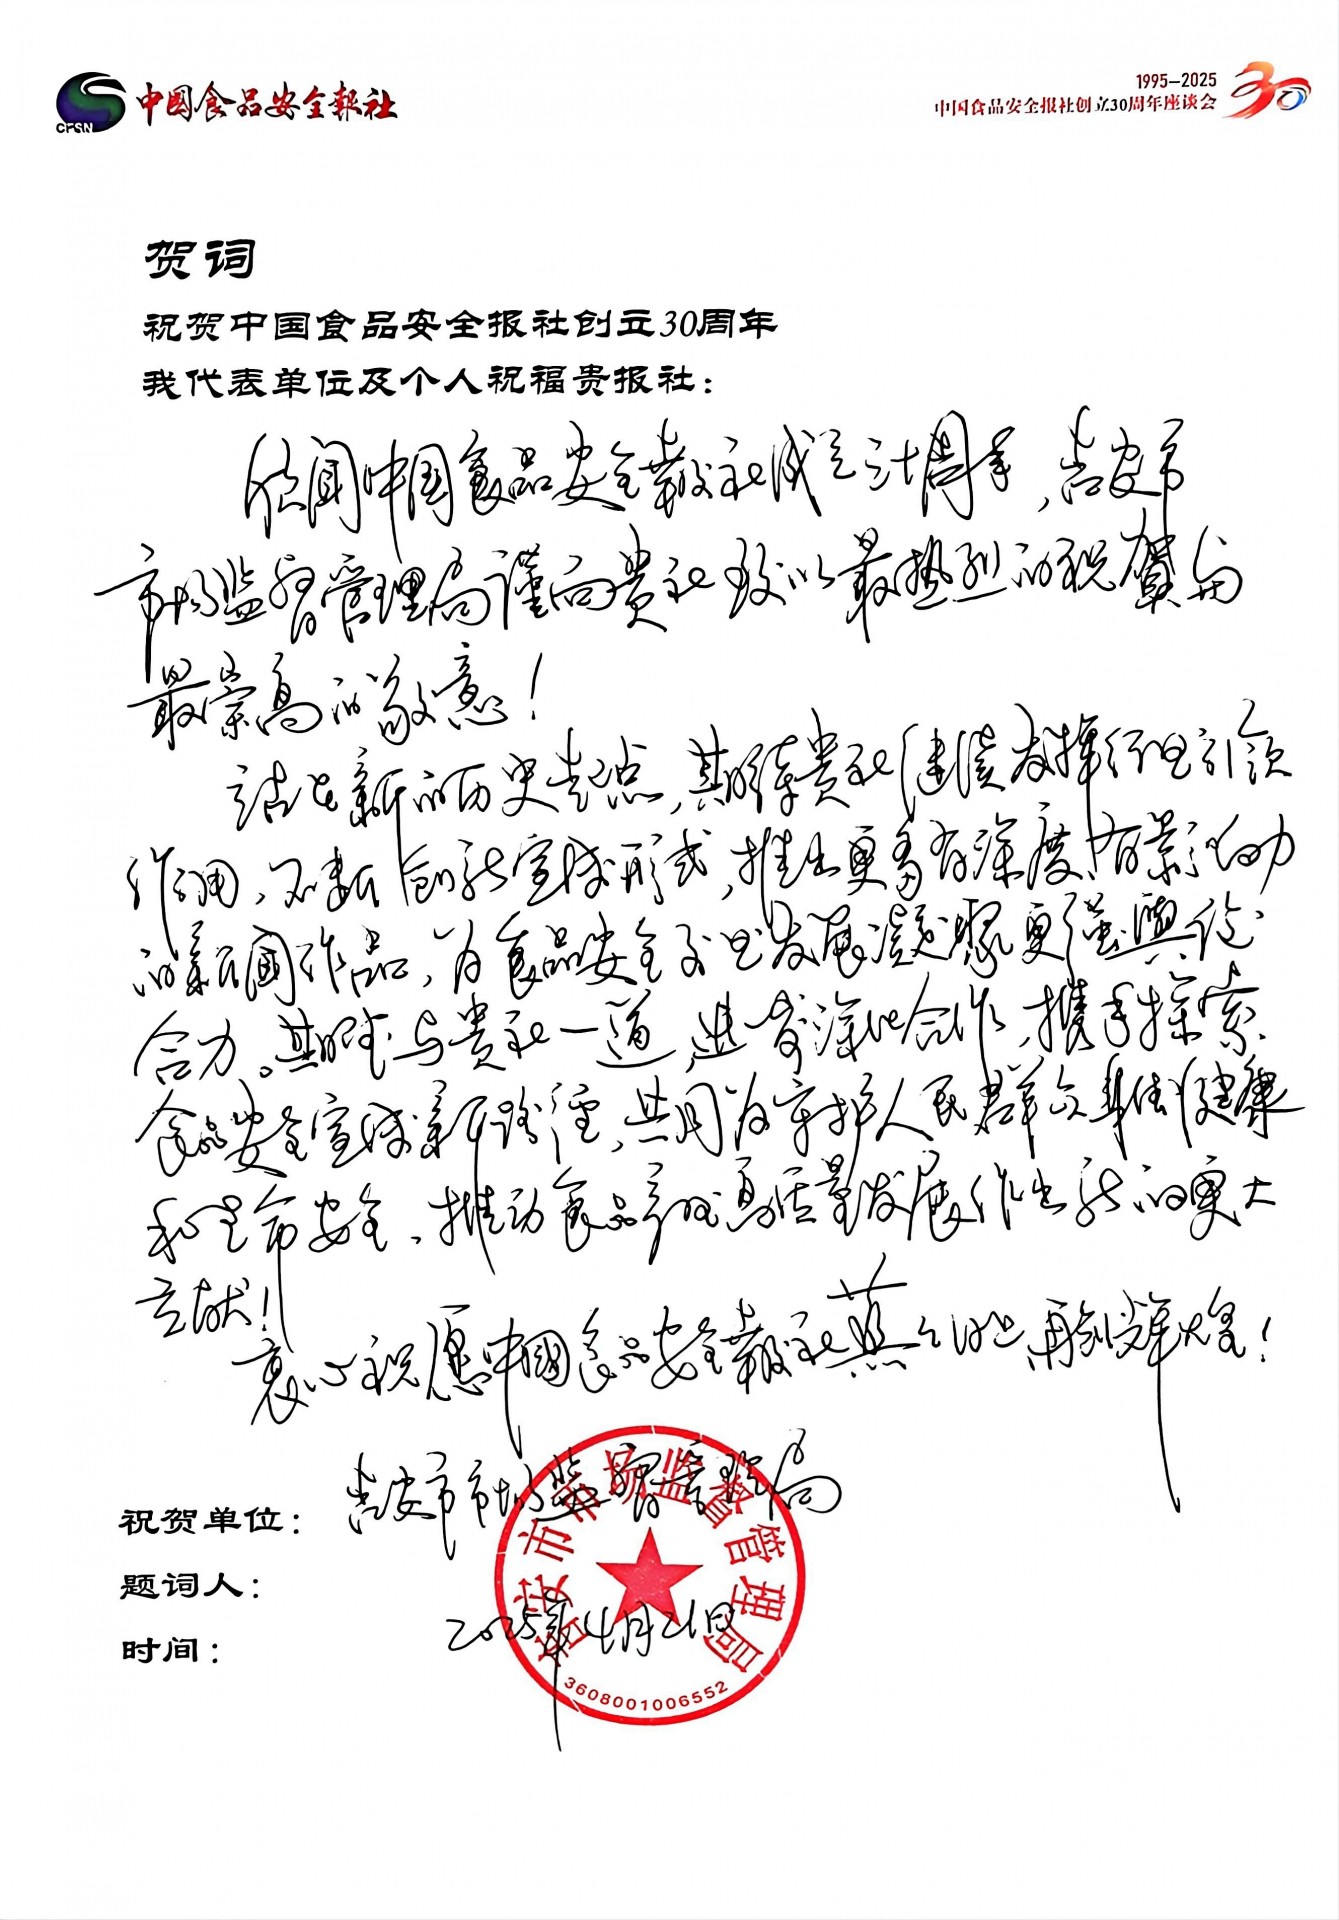 CFSN 中国食品安全报社
1995-2025
中国食品安全报社创立30周年座谈会
30
贺词
祝贺中国食品安全报社创立30周年
我代表单位及个人祝福贵报社：
欣闻中国食品安全報社成立三十周年，吉安市
市场监督管理局谨向贵社致以最热烈的祝賀与
最崇高的敬意！
站在新的历史起点，期待贵社继续发挥行业引领
作用、不断创新宣传形式，推出更多有深度、有影响力
的新闻作品，为食品安全事业发展凝聚更强輿论
合力。期盼与贵社一道，进一步深化合作，携手探索
食品安全宣传新路径，共同为守护人民群众身体健康
和生命安全、推动食品产业高质量发展作出新的更大
贡献！
衷心祝愿中國食品安全報社蒸蒸日上，再创辉煌！
祝贺单位：吉安市市场监督管理局
题词人：
时间：2025年4月21日
吉安市市场监督管理局
3608001006552